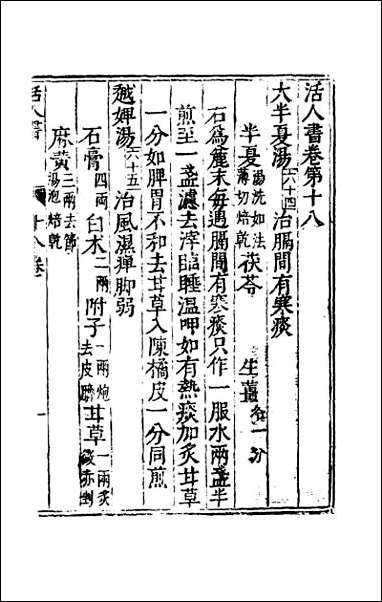 活人書卷第十八
大半夏湯六十四治膈間有寒痰
半夏湯洗如法薄切焙乾茯苓 生薑各一分
右為麄末每遇膈間有寒痰只作一服水兩盞半
煎至一盞濾去滓臨睡溫呷如有熱痰加炙甘草
一分如脾胃不和去甘草入陳橘皮一分同煎
越婢湯六十五治風濕痺脚弱
石膏四兩白术二兩附子一兩炮去皮臍甘草一兩炙微赤剉
麻黃三兩去節湯泡焙乾
活人書 十八卷 一